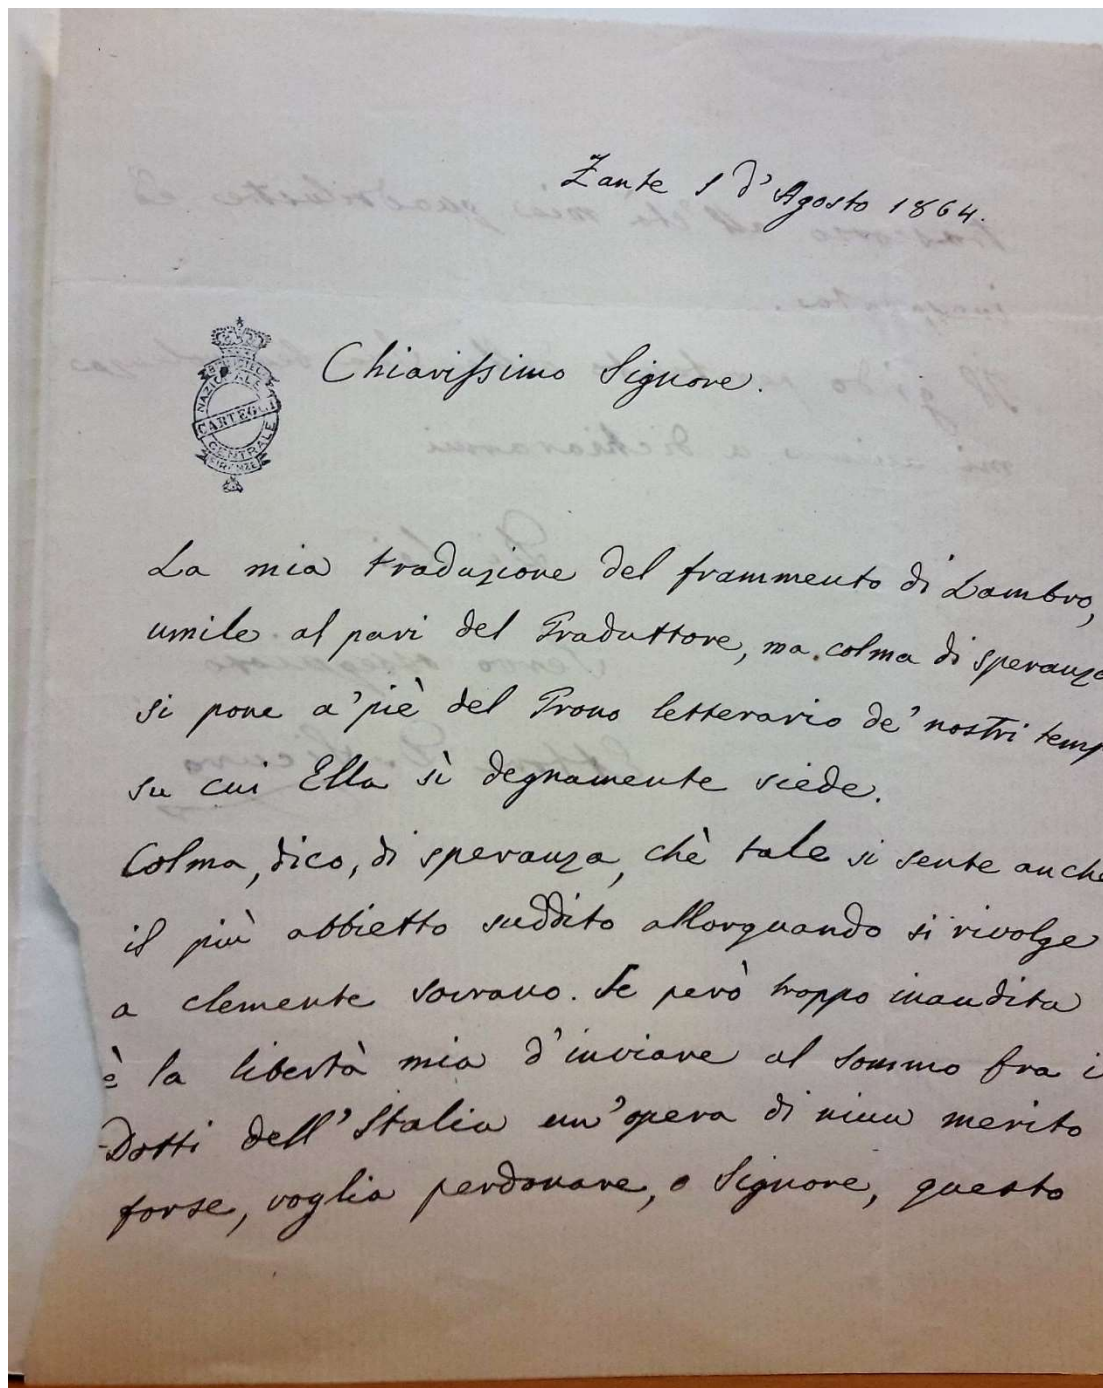 Zante 1 d'Agosto 1864.
BIBLIOTECA
NAZIONALE
CARTEGGI
CENTRALE
FIRENZE
Chiarissimo Signore.
La mia traduzione del frammento di Lambro,
umile al pari del Traduttore, ma colma di speranza
si pone a' piè del Trono letterario de' nostri temp
su cui Ella sì degnamente siede.
Colma, dico, di speranza, chè tale si sente anche
il più abbietto suddito allorquando si rivolge
a clemente sovrano. Se però troppo inaudita
è la libertà mia d'inviare al sommo fra i
Dotti dell'Italia un'opera di niun merito
forse, voglia perdonare, o Signore, questo